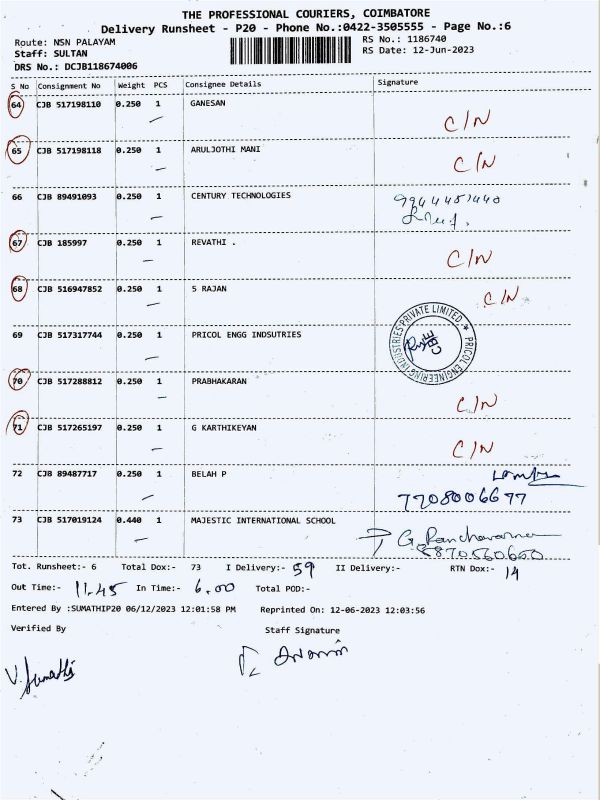 THE PROFESSIONAL COURIERS, COIMBATORE
Delivery Runsheet - P20 - Phone No.:0422-3505555 - Page No.:6
Route: NSN PALAYAM RS No.: 1186740
Staff: SULTAN RS Date: 12-Jun-2023
DRS No.: DCJB118674006
S No Consignment No Weight PCS Consignee Details Signature
64 CJB 517198110 0.250 1 GANESAN C/N
65 CJB 517198118 0.250 1 ARULJOTHI MANI C/N
66 CJB 89491093 0.250 1 CENTURY TECHNOLOGIES 9944451440
67 CJB 185997 0.250 1 REVATHI . C/N
68 CJB 516947852 0.250 1 S RAJAN C/N
69 CJB 517317744 0.250 1 PRICOL ENGG INDSUTRIES
PRICOL ENGINEERING INDUSTRIES PRIVATE LIMITED ★
CBE
70 CJB 517288812 0.250 1 PRABHAKARAN C/N
71 CJB 517265197 0.250 1 G KARTHIKEYAN C/N
72 CJB 89487717 0.250 1 BELAH P
7708006677
73 CJB 517019124 0.440 1 MAJESTIC INTERNATIONAL SCHOOL
8870560660
Tot. Runsheet:- 6 Total Dox:- 73 I Delivery:- 59 II Delivery:- RTN Dox:- 14
Out Time:- 11.45 In Time:- 6.00 Total POD:-
Entered By :SUMATHIP20 06/12/2023 12:01:58 PM Reprinted On: 12-06-2023 12:03:56
Verified By Staff Signature
V. Sumathi